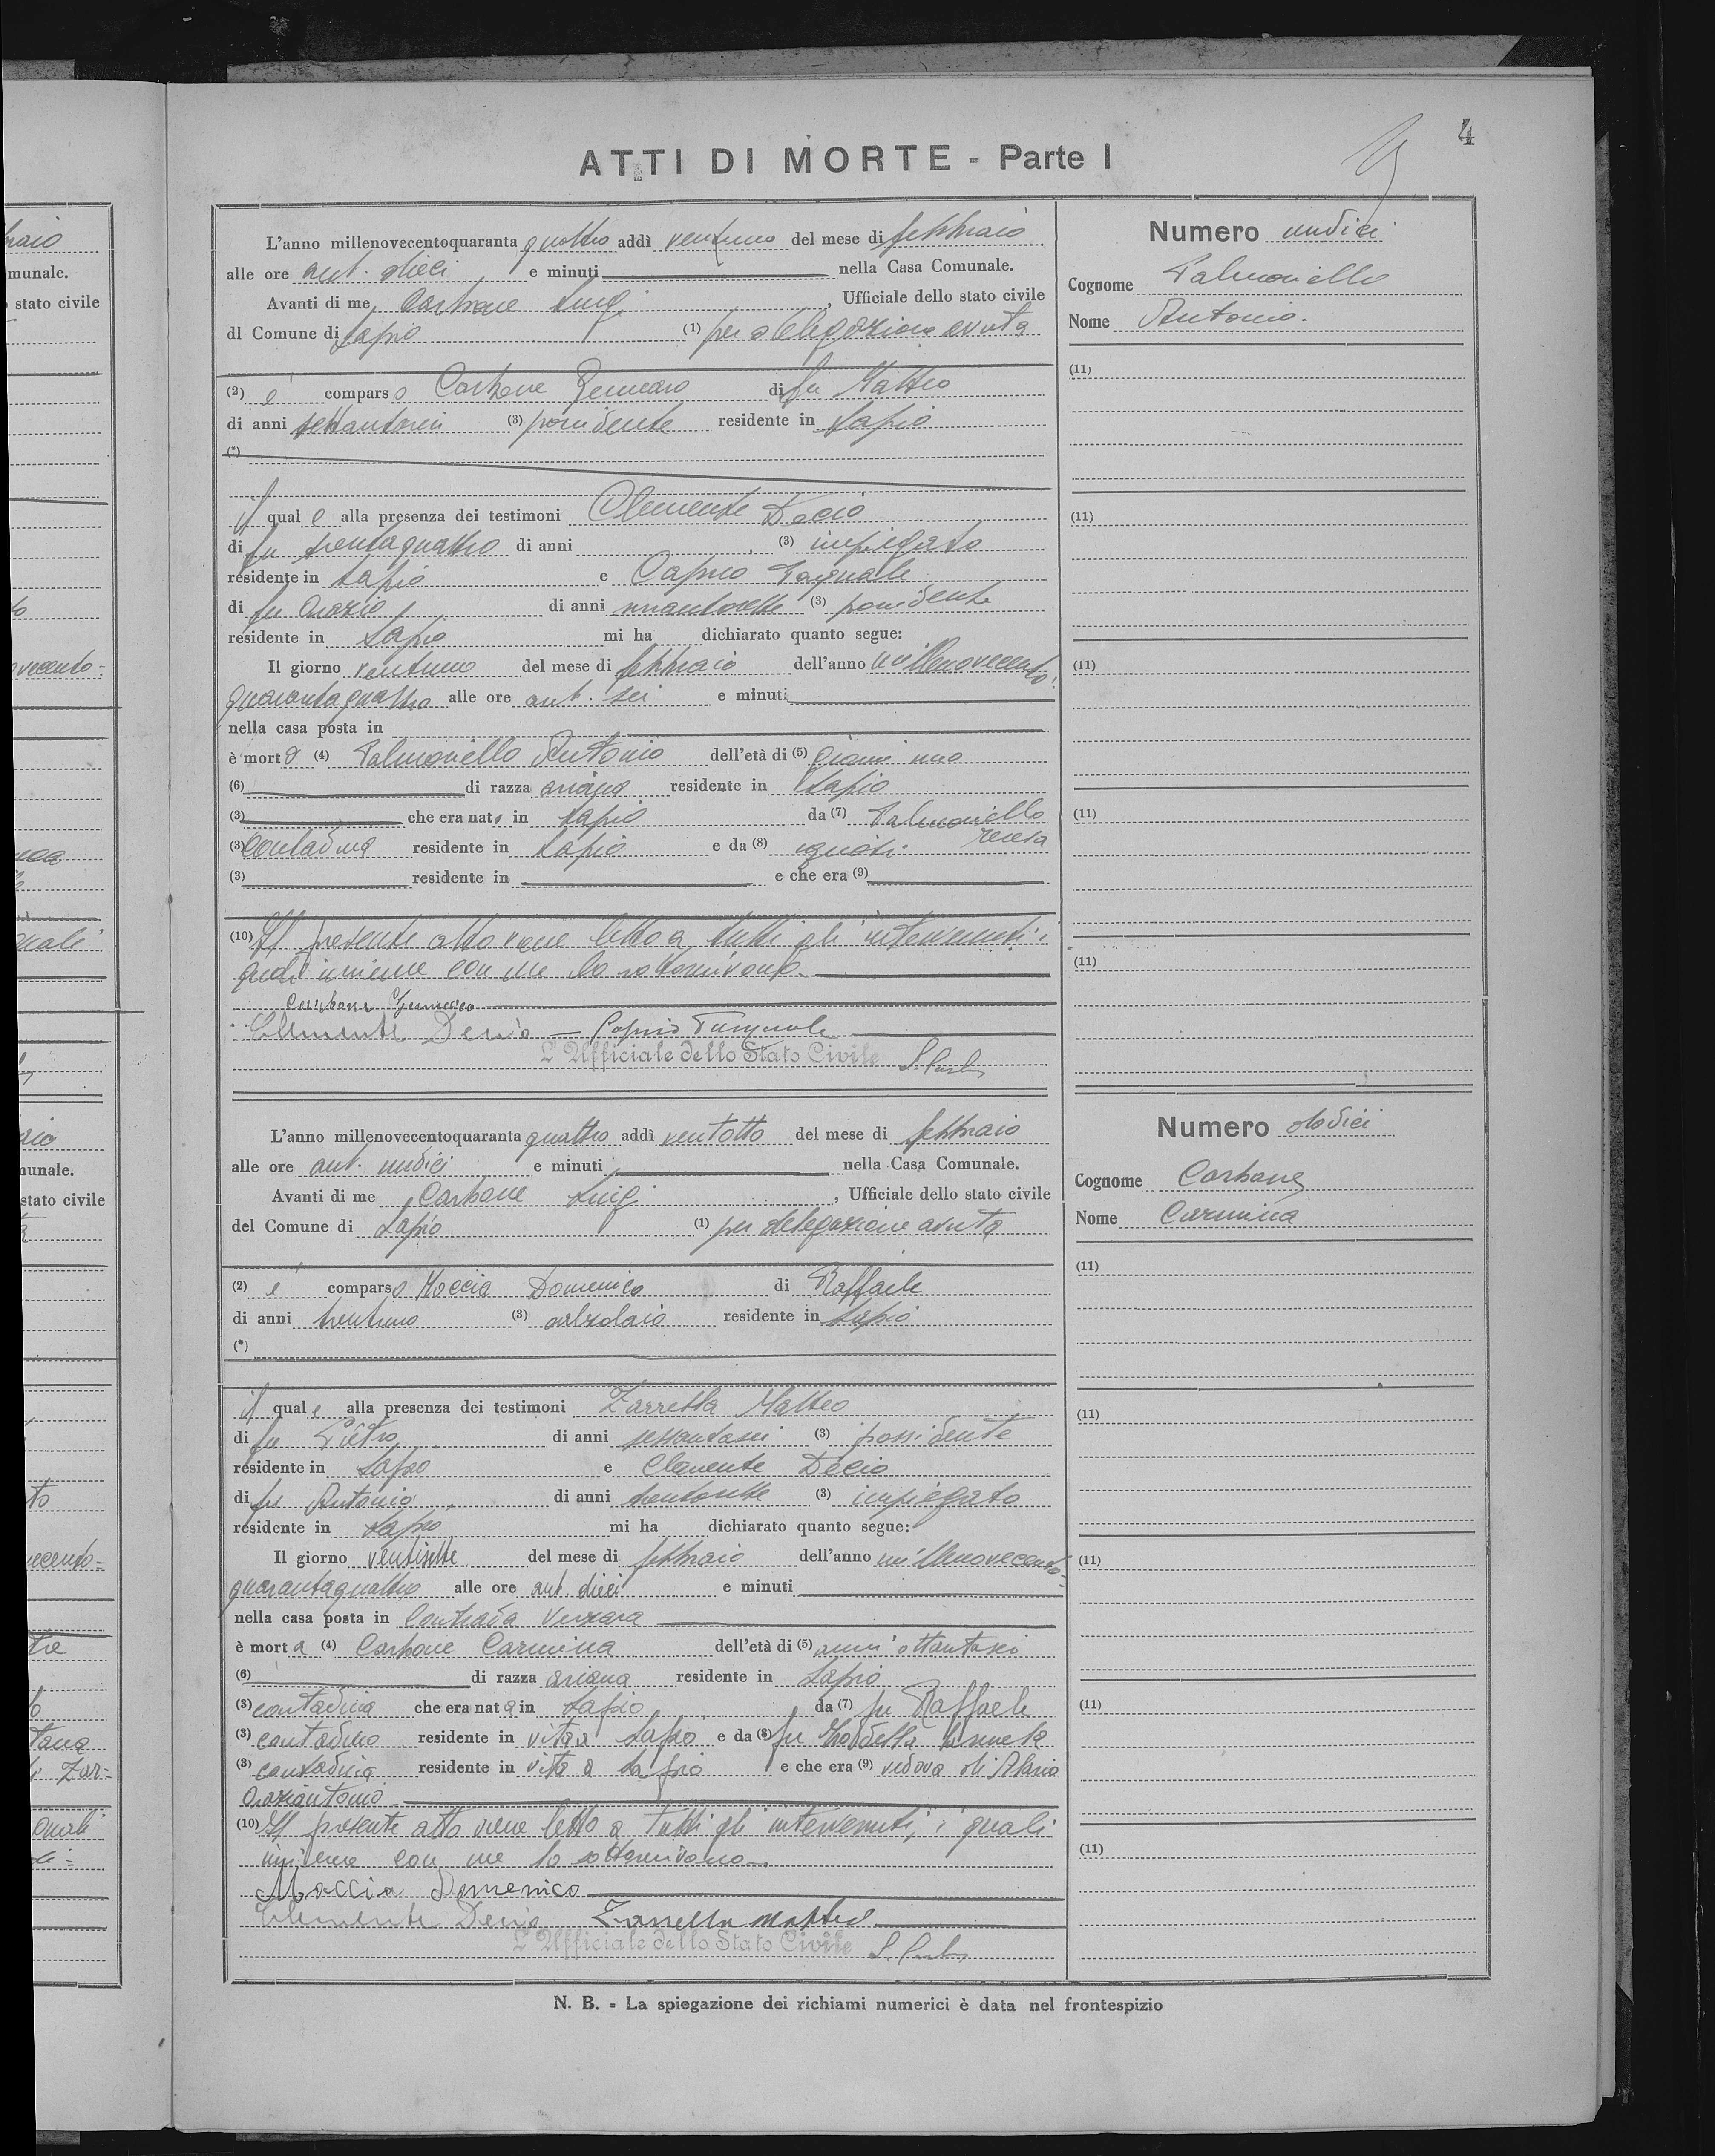 4
ATTI DI MORTE - Parte I
L'anno millenovecentoquaranta quattro addì ventuno del mese di febbraio
alle ore ant. dieci e minuti nella Casa Comunale.
Avanti di me Carbone Luigi, Ufficiale dello stato civile
dl Comune di Lapio (1) per delegazione avuta
(2) è comparso Carbone Gennaro di fu Matteo
di anni settantasei (3) possidente residente in Lapio
(*)
il quale alla presenza dei testimoni Clemente Decio
di fu trentaquattro di anni (3) impiegato
residente in Lapio e Caprio Pasquale
di fu Orazio di anni (3) possidente
residente in Lapio mi ha dichiarato quanto segue:
Il giorno ventuno del mese di febbraio dell'anno millenovecento=
quarantaquattro alle ore ant. sei e minuti
nella casa posta in
è morto (4) Palmariello Antonio dell'età di (5) giorni uno
(6) di razza ariana residente in Lapio
(3) che era nato in Lapio da (7) Palmariello
Teresa
(3) contadina residente in Lapio e da (8) ignoti
(3) residente in e che era (9)
(10) Il presente atto viene letto a tutti gli intervenuti i
quali insieme con me lo sottoscrivono.
Carbone Gennaro
Clemente Decio - Caprio Pasquale
L'Ufficiale dello Stato Civile
Numero undici
Cognome Palmariello
Nome Antonio.
(11)
(11)
(11)
(11)
(11)
L'anno millenovecentoquaranta quattro addì ventotto del mese di febbraio
alle ore ant. undici e minuti nella Casa Comunale.
Avanti di me Carbone Luigi, Ufficiale dello stato civile
del Comune di Lapio (1) per delegazione avuta
(2) è comparso Moccia Domenico di Raffaele
di anni trentuno (3) calzolaio residente in Lapio
(*)
il quale alla presenza dei testimoni Zarrella Matteo
di fu Pietro di anni sessantasei (3) possidente
residente in Lapio e Clemente Decio
di fu Antonio di anni (3) impiegato
residente in Lapio mi ha dichiarato quanto segue:
Il giorno ventisette del mese di febbraio dell'anno millenovecento=
quarantaquattro alle ore ant. dieci e minuti
nella casa posta in Contrada Verzara
è morta (4) Carbone Carmina dell'età di (5) anni ottantasei
(6) di razza ariana residente in Lapio
(3) contadina che era nata in Lapio da (7) fu Raffaele
(3) contadino residente in vita a Lapio e da (8) fu
(3) contadina residente in vita a Lapio e che era (9) vedova di
Oraziantonio
(10) Il presente atto viene letto a tutti gli intervenuti, i quali
insieme con me lo sottoscrivono.
Moccia Domenico
Clemente Decio Zarrella Matteo
L'Ufficiale dello Stato Civile
Numero dodici
Cognome Carbone
Nome Carmina
(11)
(11)
(11)
(11)
(11)
N. B. - La spiegazione dei richiami numerici è data nel frontespizio